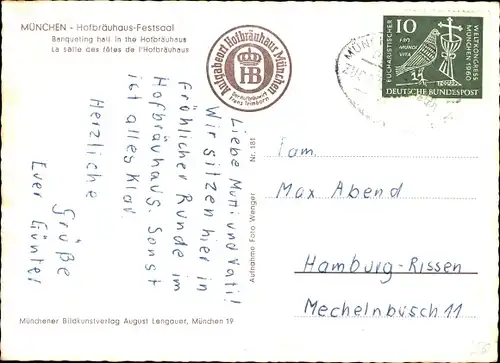 MÜNCHEN - Hofbräuhaus-Festsaal
Banqueting hall in the Hofbräuhaus
La salle des fêtes de l'Hofbräuhaus
Aufgabeort Hofbräuhaus München
HB
Franz Trimborn
Liebe Mutti und Vati!
Wir sitzen hier in
fröhlicher Runde im
Hofbräuhaus. Sonst
ist alles klar
Herzliche
Grüße
Euer Günter
Aufnahme Foto Wenger Nr. 181
10
EUCHARISTISCHER
PRO
MUNDI
VITA
WELTKONGRESS
MÜNCHEN 1960
DEUTSCHE BUNDESPOST
Fam.
Max Abend
Hamburg-Rissen
Mechelnbusch 11
Münchener Bildkunstverlag August Lengauer, München 19